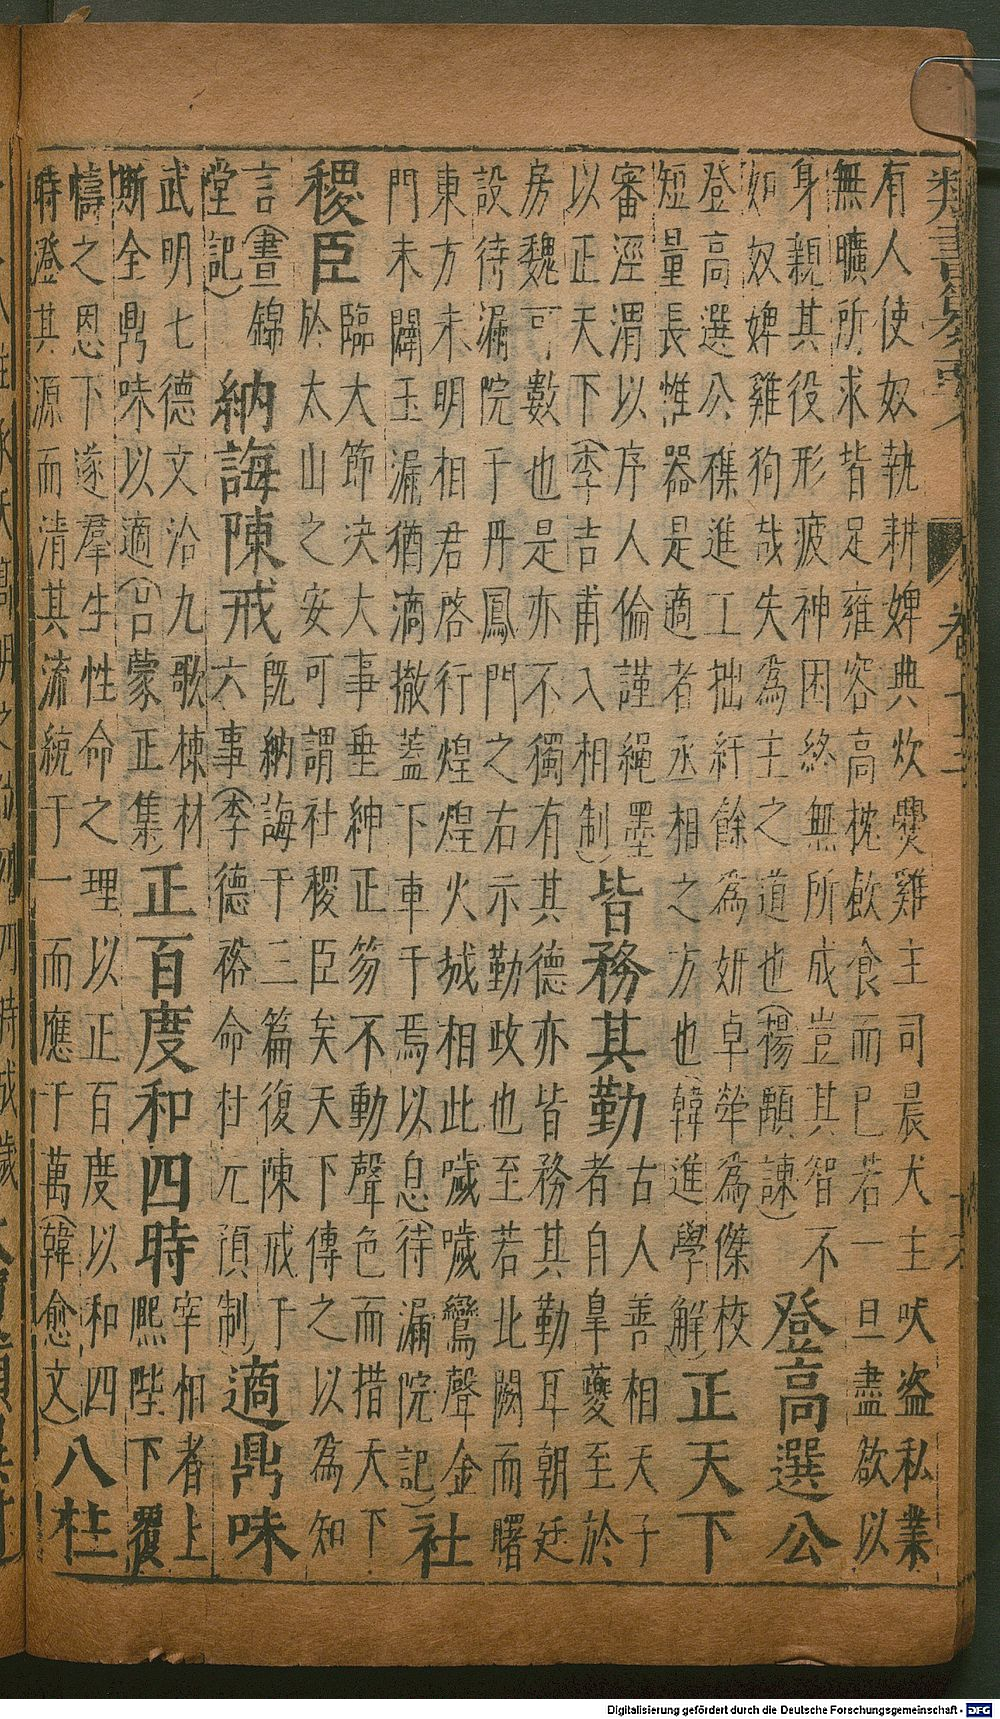 類書纂要 卷十三
有人使奴執耕婢典炊爨雞主司晨犬主吠盜私業
無曠所求皆足雍容高枕飲食而已若一旦盡欲以
身親其役形疲神困終無所成豈其智不
如奴婢雞狗哉失為主之道也(楊顒諫)
登高選公
登高選公襍進工拙紆餘為妍卓犖為傑校
短量長惟器是適者丞相之方也韓進學解)
正天下
審涇渭以序人倫謹繩墨
以正天下(李吉甫入相制)
皆務其勤
古人善相天子
者自皐夔至於
房魏可數也是亦不獨有其德亦皆務其勤耳朝廷
設待漏院于丹鳳門之右示勤政也至若北闕而曙
東方未明相君啓行煌煌火城相此噦噦鸞聲金
門未闢玉漏猶滴撤蓋下車于焉以息(待漏院記)
社
稷臣
臨大節决大事垂紳正笏不動聲色而措天下
於太山之安可謂社稷臣矣天下傳之以為知
言(晝錦
堂記)
納誨陳戒
既納誨于三篇復陳戒于
六事(李德裕命杜元頂制)
適鼎味
武明七德文洽九歌棟材
斯全鼎味以適(呂蒙正集)
正百度和四時
宰相者上
熙陛下覆
幬之恩下遂羣生性命之理以正百度以和四
時澄其源而清其流統于一而應于萬(韓愈文)
八柱
Digitalisierung gefördert durch die Deutsche Forschungsgemeinschaft - DFG